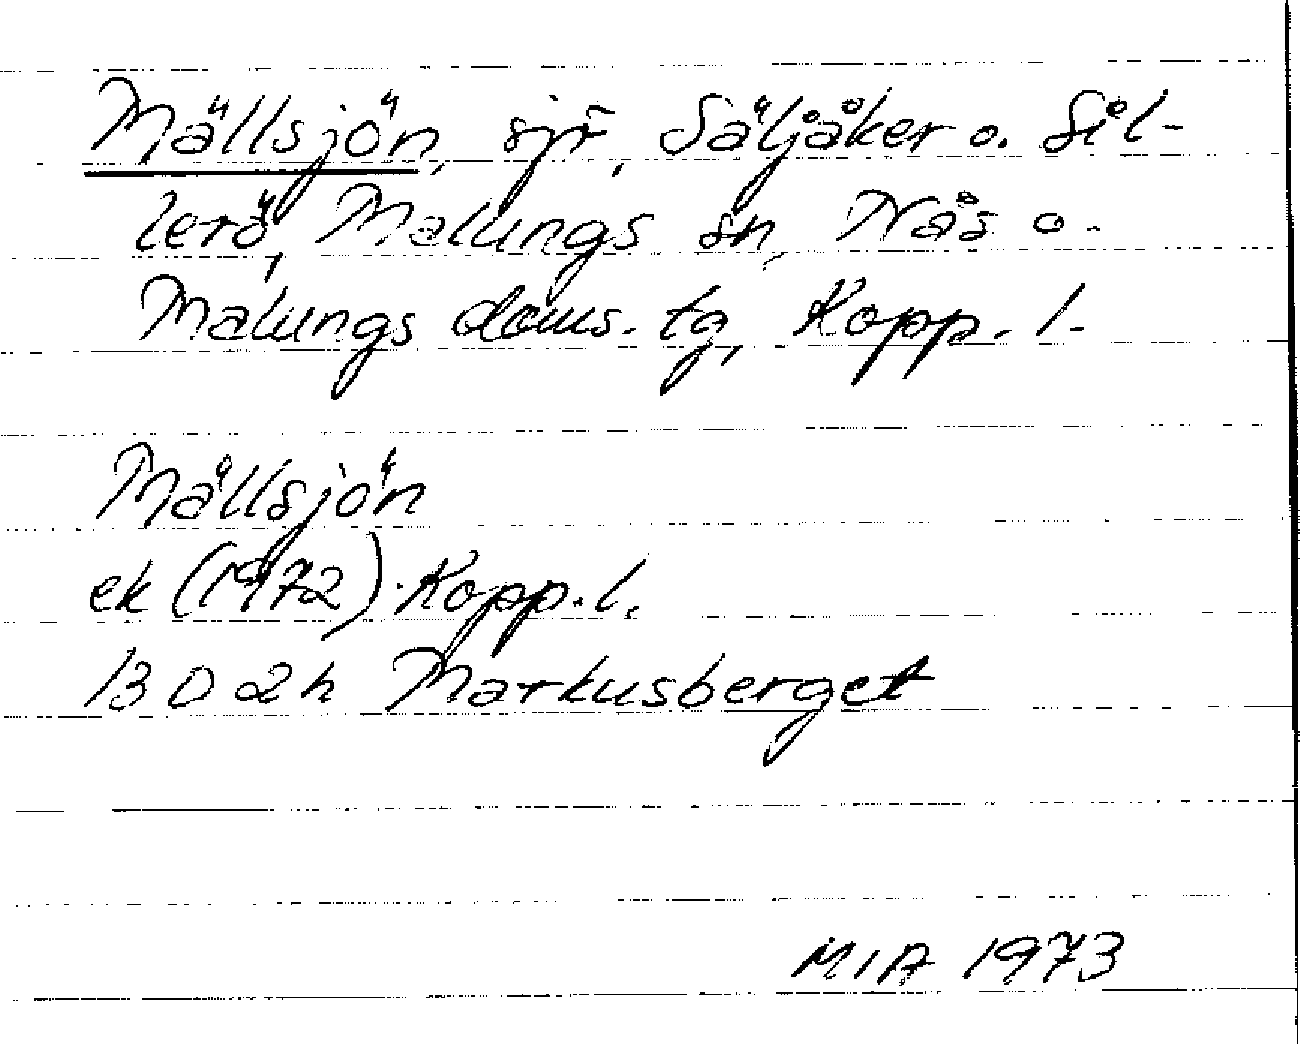 Mällsjön, sjö, Säljåker o. Sil-
lerö, Malungs sn, Nås o.
Malungs doms. tg, Kopp. l.
Mällsjön
ek (1972). Kopp. l.
13 D 2h Markusberget
MIA 1973